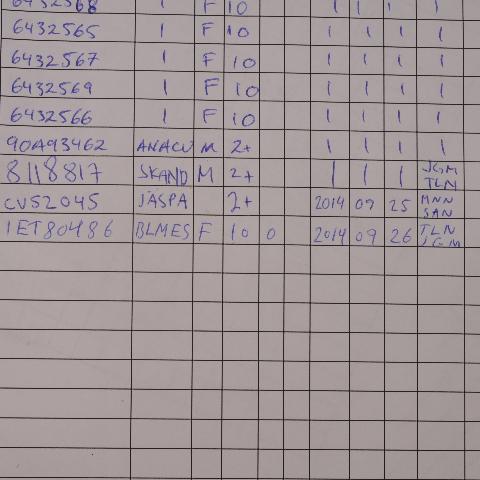 6432568 1 F 10 1 1 1 1
6432565 1 F 10 1 1 1 1
6432567 1 F 10 1 1 1 1
6432569 1 F 10 1 1 1 1
6432566 1 F 10 1 1 1 1
90A93462 ANACU M 2+ 1 1 1 1
8118817 SKAND M 2+ 1 1 1 JGM
TLN
CV52045 JASPA 2+ 2014 09 25 MNN
SAN
1ET80486 BLMES F 10 0 2014 09 26 TLN
JGM